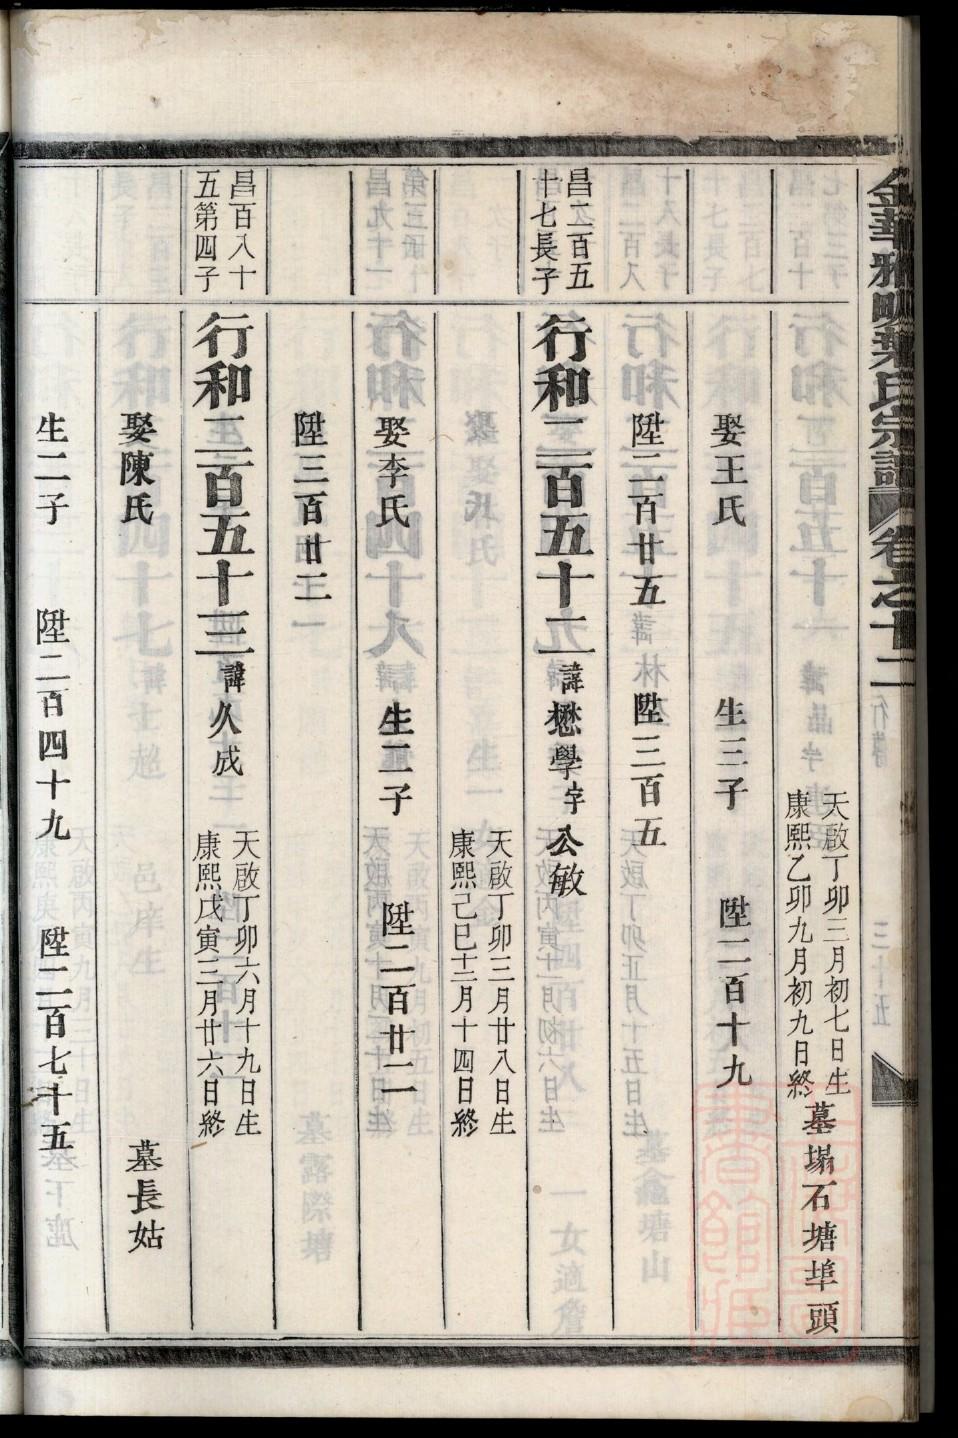 金華雅畈葉氏宗譜 卷之十二
天啟丁卯三月初七日生
康熙乙卯九月初九日終
墓塌石塘埠頭
娶王氏 生三子 陞二百十九
陞二百廿五 陞三百五
昌二百五
十七長子
行和二百五十二 諱懋學字公敏
天啟丁卯三月廿八日生
康熙己巳十二月十四日終
娶李氏 生二子 陞二百廿二
陞三百廿二
昌百八十
五第四子
行和二百五十三 諱久成
天啟丁卯六月十九日生
康熙戊寅三月廿六日終
娶陳氏 墓長姑
生二子 陞二百四十九 陞二百七十五